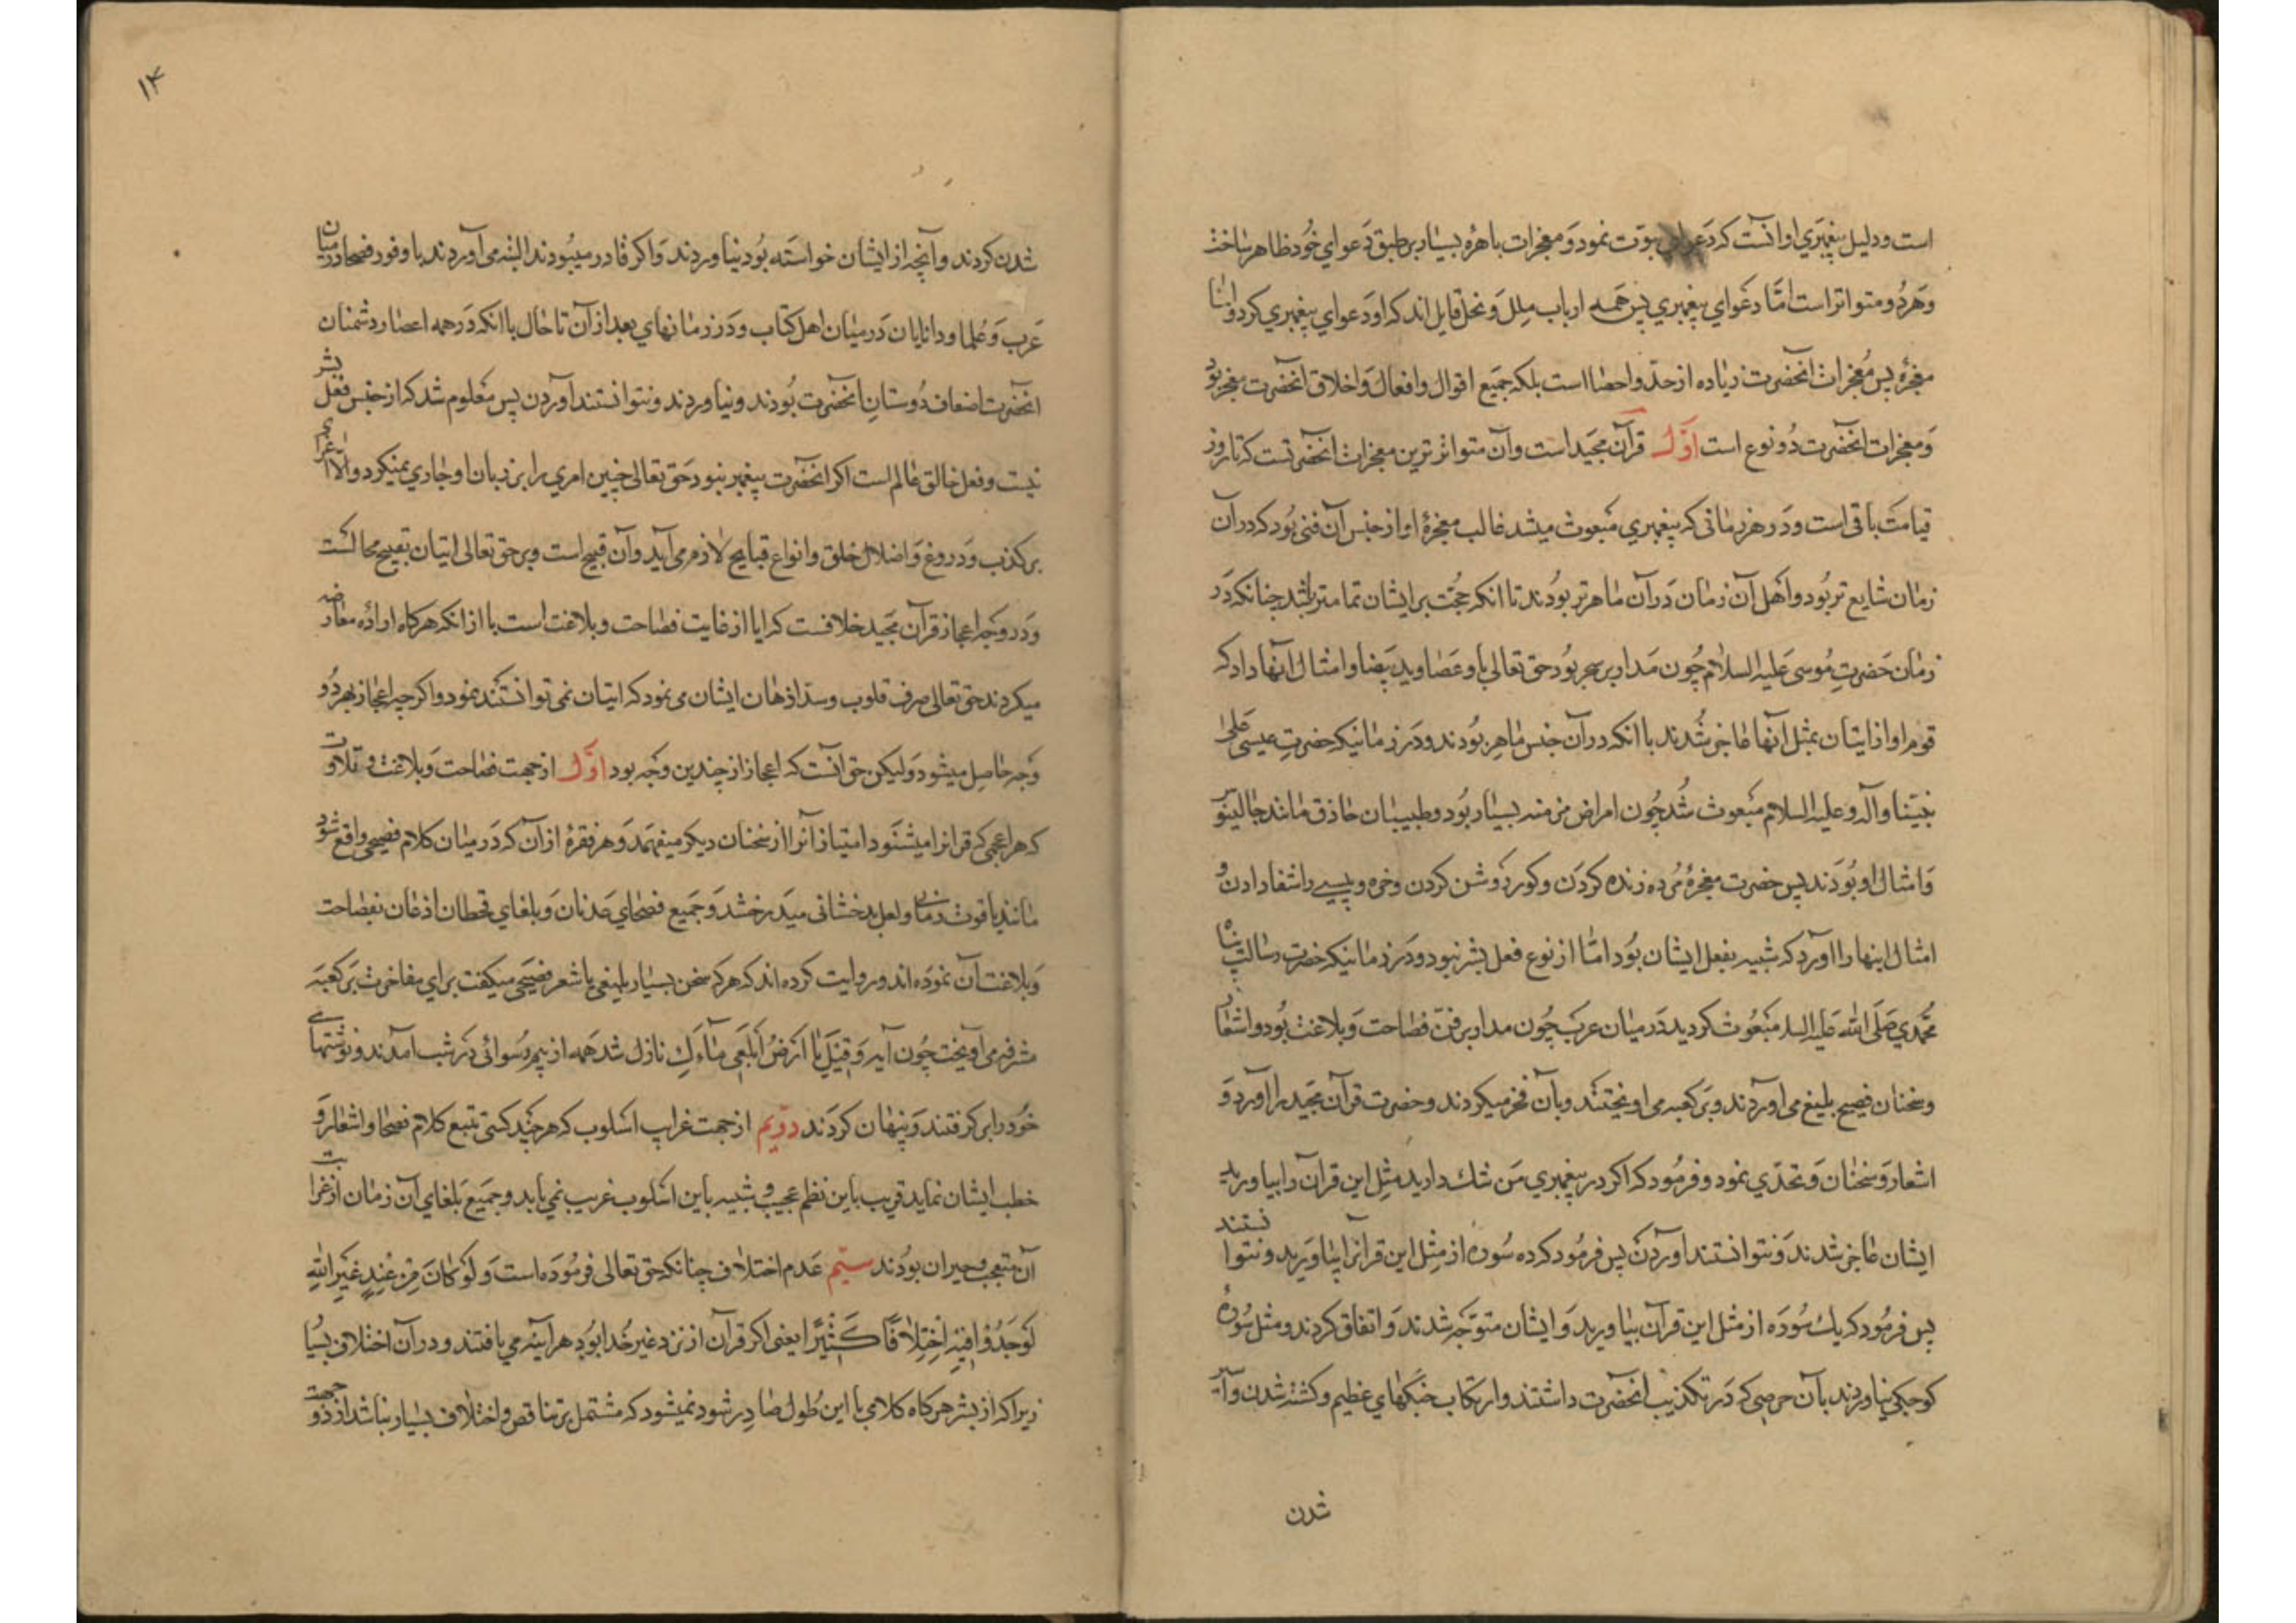 است ودلیل پیغمبری او آنست که دعوای نبوّت نمود و معجزات باهره بسیار بر طبق دعوای خود ظاهر ساخت
وهر دو متواتر است امّا دعوای پیغمبری پس همه ارباب ملل و نحل قایل اند که او دعوای پیغمبری کرد و اما
معجزه پس معجزات آنحضرت زیاده از حدّ و احصا است بلکه جمیع اقوال وافعال و اخلاق آنحضرت معجزه بود
ومعجزات آنحضرت دو نوع است اوّل قرآن مجید است وآن متواتر ترین معجزات آنحضرتست که تا روز
قیامت باقی است ودر هر زمانی که پیغمبری مبعوث میشد غالب معجزهٔ او از جنس آن فنی بود که در آن
زمان شایع تر بود واهل آن زمان در آن ماهرتر بودند تا آنکه حجّت بر ایشان تمامتر باشد چنانکه در
زمان حضرت موسی علیه السلام چون مدار بر سحر بود حق تعالی باو عصا وید بیضا وامثال آنها داد که
قوم او از ایتان بمثل آنها عاجز شدند با آنکه در آن جنس ماهر بودند ودر زمانیکه حضرت عیسی علی
نبیّنا وآله وعلیه السلام مبعوث شد چون امراض مزمنه بسیار بود وطبیبان حاذق مانند جالینوس
وامثال او بودند پس حضرت معجزهٔ مرده زنده کردن وکور روشن کردن وخره وپیسی را شفا دادن و
امثال اینها را آورد که شبیه بفعل ایشان بود امّا از نوع فعل بشر نبود ودر زمانیکه حضرت رسالت پناه
محمّدی صلی الله علیه السلم مبعوث گردید در میان عرب چون مدار بر فنّ فصاحت وبلاغت بود واشعار
وسخنان فصیح بلیغ می آوردند وبر کعبه می آویختند وبآن فخر میکردند وحضرت قرآن مجید را آورد و
اشعار وسخنان وتحدّی نمود وفرمود که اگر در پیغمبری من شک دارید مثل این قرآن را بیاورید
ایشان عاجز شدند ونتوانستند آوردن پس فرمود که ده سوره از مثل این قرآنرا بیاورید ونتوانستند
پس فرمود که یک سوره از مثل این قرآن بیاورید وایشان متوجه شدند واتفاق کردند ومثل سورهٔ
کوچکی نیاوردند بآن حرصی که در تکذیب آنحضرت داشتند وارتکاب جنگهای عظیم وکشته شدن و
شدن
۱۴
شدن کردند وآنچه از ایشان خواسته بود نیاوردند واگر قادر میبودند البته می آوردند با وفور فصحا در میان
عرب وعلما ودانایان در میان اهل کتاب ودر زمانهای بعد از آن تا حال با آنکه در همه اعصار دشمنان
آنحضرت اضعاف دوستان آنحضرت بودند ونیاوردند ونتوانستند آوردن پس معلوم شد که از جنس فعل بشر
نیست وفعل خالق عالم است اگر آنحضرت پیغمبر نبود حق تعالی چنین امری را بر زبان او جاری نمیکرد والا اغرای
بر کذب ودروغ واضلال خلق وانواع قبایح لازم می آید وآن قبیح است وبر حق تعالی ایتان بقبیح محالست
ودر وجه اعجاز قرآن مجید خلافست که آیا از غایت فصاحت وبلاغت است یا از آنکه هرگاه اراده معارضه
میکردند حق تعالی صرف قلوب وسدّ اذهان ایشان می نمود که ایتان نمی توانستند نمود واگرچه اعجاز بهر دو
وجه حاصل میشود ولیکن حق آنست که اعجاز از چندین وجه بود اوّل از جهت فصاحت وبلاغت وتلاوت
که هر اعجمی که قرآنرا میشنود امتیاز آنرا از سخنان دیگر میفهمد وهر فقرهٔ از آن که در میان کلام فصیحی واقع شود
مانند یاقوت رمانی ولعل بدخشانی میدرخشد وجمیع فصحای عدنان وبلغای قحطان اذعان بفصاحت
وبلاغت آن نموده اند وروایت کرده اند که هر که سخن بسیار بلیغی یا شعر فصیحی میگفت برای مفاخرت بر کعبه
مشرفه می آویخت چون آیه وَقِیلَ یَا اَرْضُ ابْلَعِی مَاءَكِ نازل شد همه از بیم رسوائی در شب آمدند ونوشتهای
خود را بر گرفتند وپنهان کردند دویّم از جهت غرابت اسلوب که هر چند کسی تتبع کلام فصحا واشعار و
خطب ایشان نماید قریب باین نظم عجیب وشبیه باین اسلوب غریب نمی یابد وجمیع بلغای آن زمان از غرابت
آن متعجب وحیران بودند سیّم عدم اختلاف چنانکه حق تعالی فرموده است وَلَوْ کَانَ مِنْ عِنْدِ غَیْرِ اللّٰهِ
لَوَجَدُوا فِیهِ اخْتِلَافًا کَثِیرًا یعنی اگر قرآن از نزد غیر خدا بود هر آینه می یافتند ودر آن اختلاف بسیا
زیرا که از بشر هرگاه کلامی با این طول صادر شود نمیشود که مشتمل بر تناقص واختلاف بسیار نباشد از دو جهت